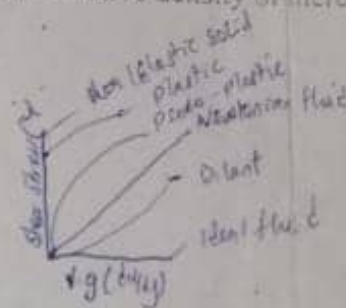 density of
Elastic solid
plastic
pseudo plastic
Newtonian fluid
Dilant
Ideal fluid
Shear Stress
(du/dy)